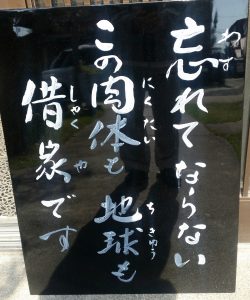 忘れてならない
この肉体も地球も
借家です
わす
にくたい
ちきゅう
しゃくや